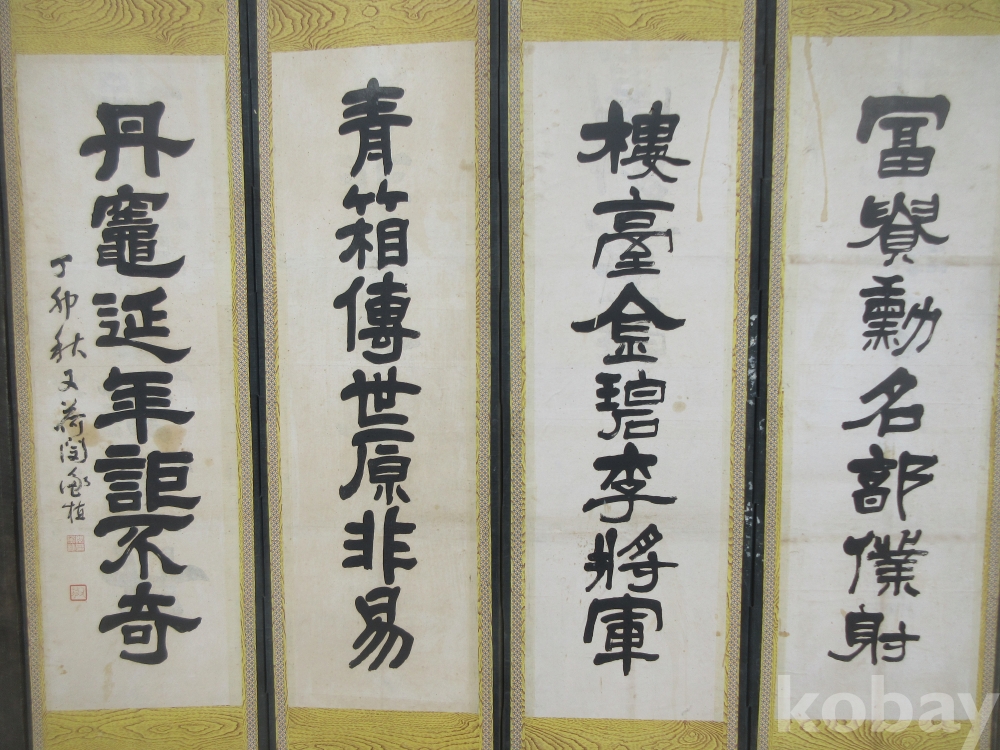 冨貴勳名部僕射
樓臺金碧李將軍
青箱傳世原非易
丹竈延年詎不奇
丁卯秋又荷閔泳植
kobay